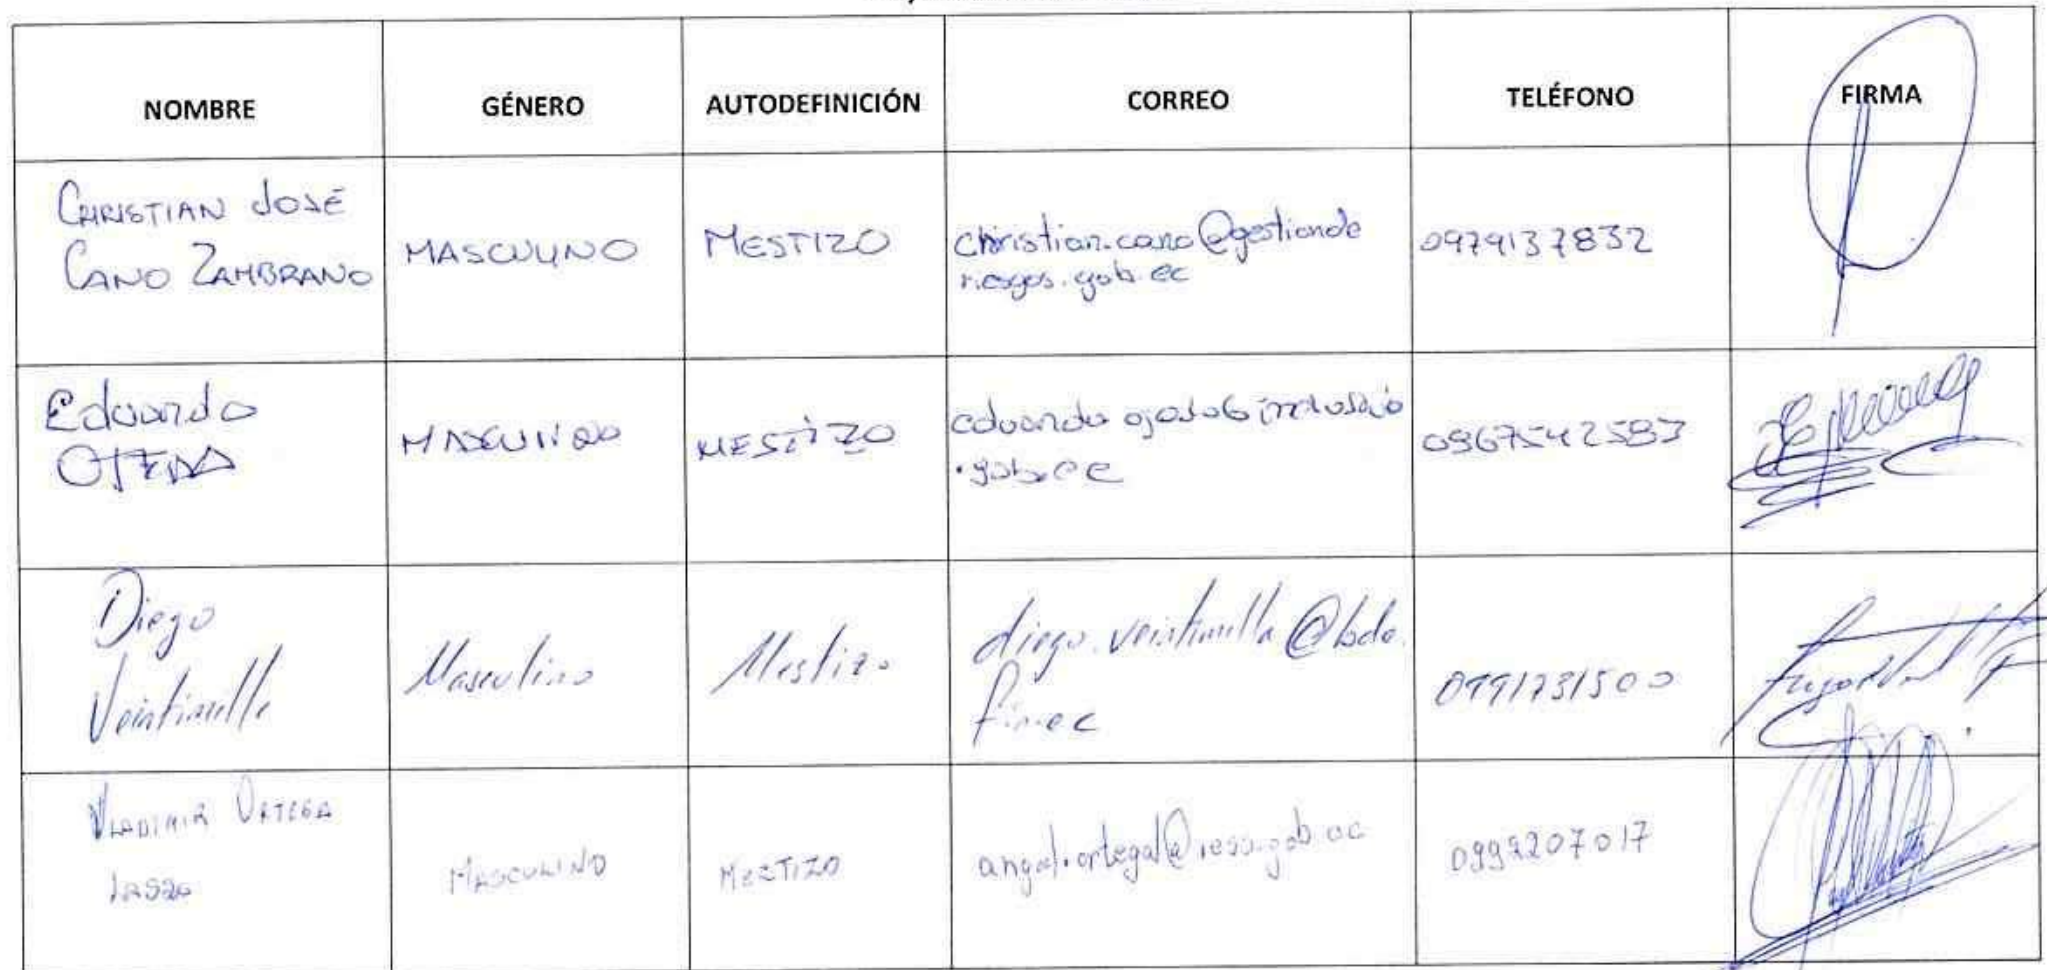 NOMBRE GÉNERO AUTODEFINICIÓN CORREO TELÉFONO FIRMA
CHRISTIAN JOSÉ
CANO ZAMBRANO
MASCULINO
MESTIZO
christian.cano@gestionde
riesgos.gob.ec
0979137832
Eduardo
OJEDA
MASCULINO
MESTIZO
eduardo.ojeda@inclusion
.gob.ec
0967542583
Diego
Veintimilla
Masculino
Mestizo
diego.veintimilla@bde.
fin.ec
0991731500
VLADIMIR ORTEGA
LASSO
MASCULINO
MESTIZO
angel.ortegal@iess.gob.ec
0999207017